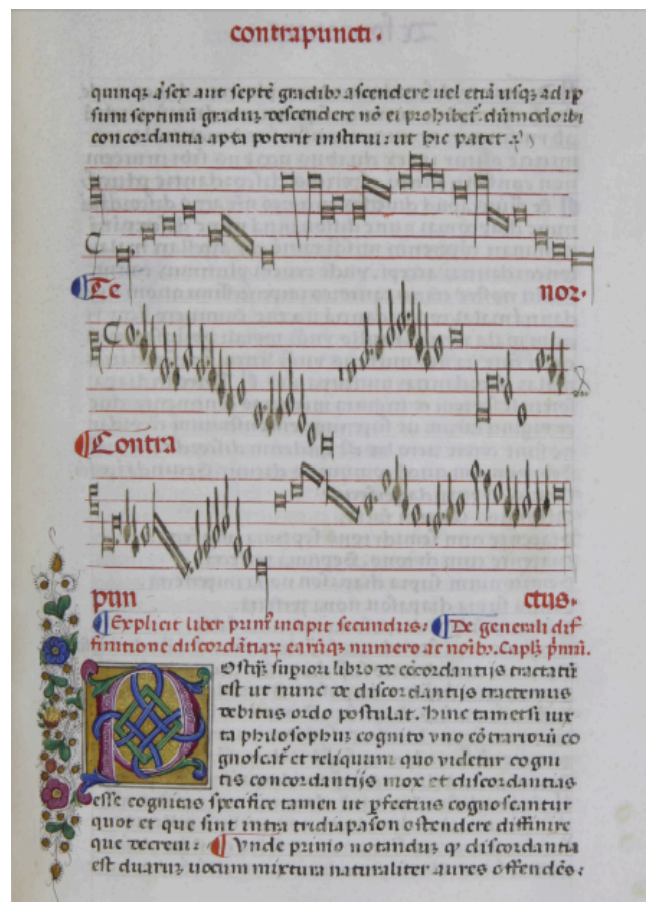 contrapuncti.
quinqꝫ aꝉ sex aut septē gradibꝫ ascendere uel etiā usqꝫ ad ip
sum septimū gradū descendere nō ei prohibet̄. dūmodo ibi
concordantia apta poterit institui: ut hic patet
Te nor.
Contra
pun ctus.
Explicit liber primꝰ incipit secundus: De generali dif
finitione discordātiaꝝ earūqꝫ numero ac noībꝫ. Caplꝫ prīmū.
Ostꝗꝫ supiori libro de cōcordantijs tractatū
est ut nunc de discordantijs tractemus
debitus ordo postulat. hinc tametsi iux
ta philosophuꝫ cognito vno cōtrarioꝝ co
gnoscat̄ et reliquum quo videtur cogni
tis concordantijs mox et discordantias
esse cognitas specifice tamen ut ꝑfectius cognoscantur
quot et que sint intra tridiapason ostendere diffinire
que decreui: Vnde primo notanduꝫ ꝙ discordantia
est duaruꝫ uocum mixtura naturaliter aures offendēs: